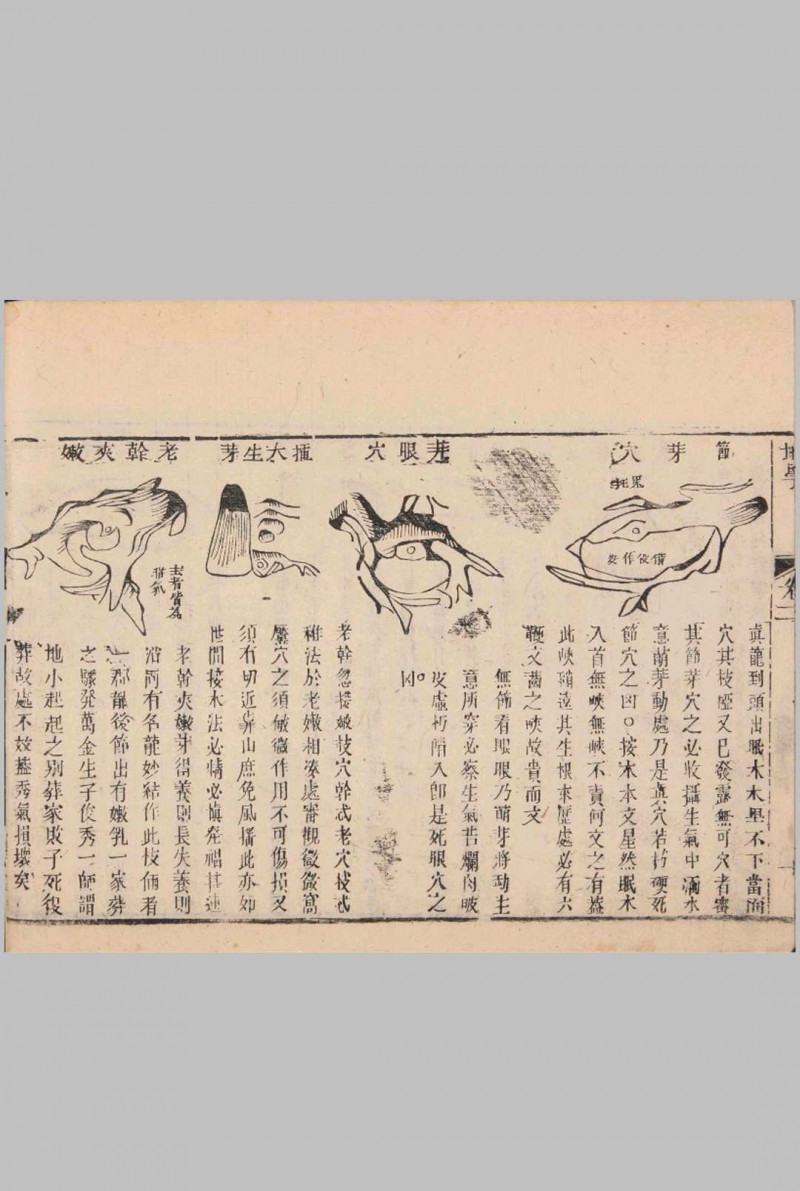 地學
卷二
節芽穴
眞龍到頭出眠木木星不下當面
穴其枝㮇又已發露無可穴者審
其節芽穴之必收攝生氣中涵水
意萌芽動處乃是眞穴若枯硬死
節穴之凶○按木本文星然眠木
入首無峽無峽不貴何文之有蓋
此峽雖遠其生根來歷處必有六
文齒之峽故貴而文
芽眼穴
無節看眼眼乃萌芽將動生
意所穿必察生氣若爛肉破
皮虛朽陷入卽是死眼穴之
凶
插木生芽
老幹忽接嫩枝穴幹忒老穴枝忒
稚法於老嫩相湊處審觀微微窩
靨穴之須做微作用不可傷損又
須有切近靠山庶免風搖此亦如
世間接木法必精必愼發福甚速
老幹夾嫩
老幹夾嫩芽得養則長失養則
有名龍妙結作此枝倆者
一郡龍後節出有嫩乳一家葬
之驟發萬金生子俊秀一師謂
地小起起之别葬家敗子死復
葬故處不效蓋秀氣損壞矣